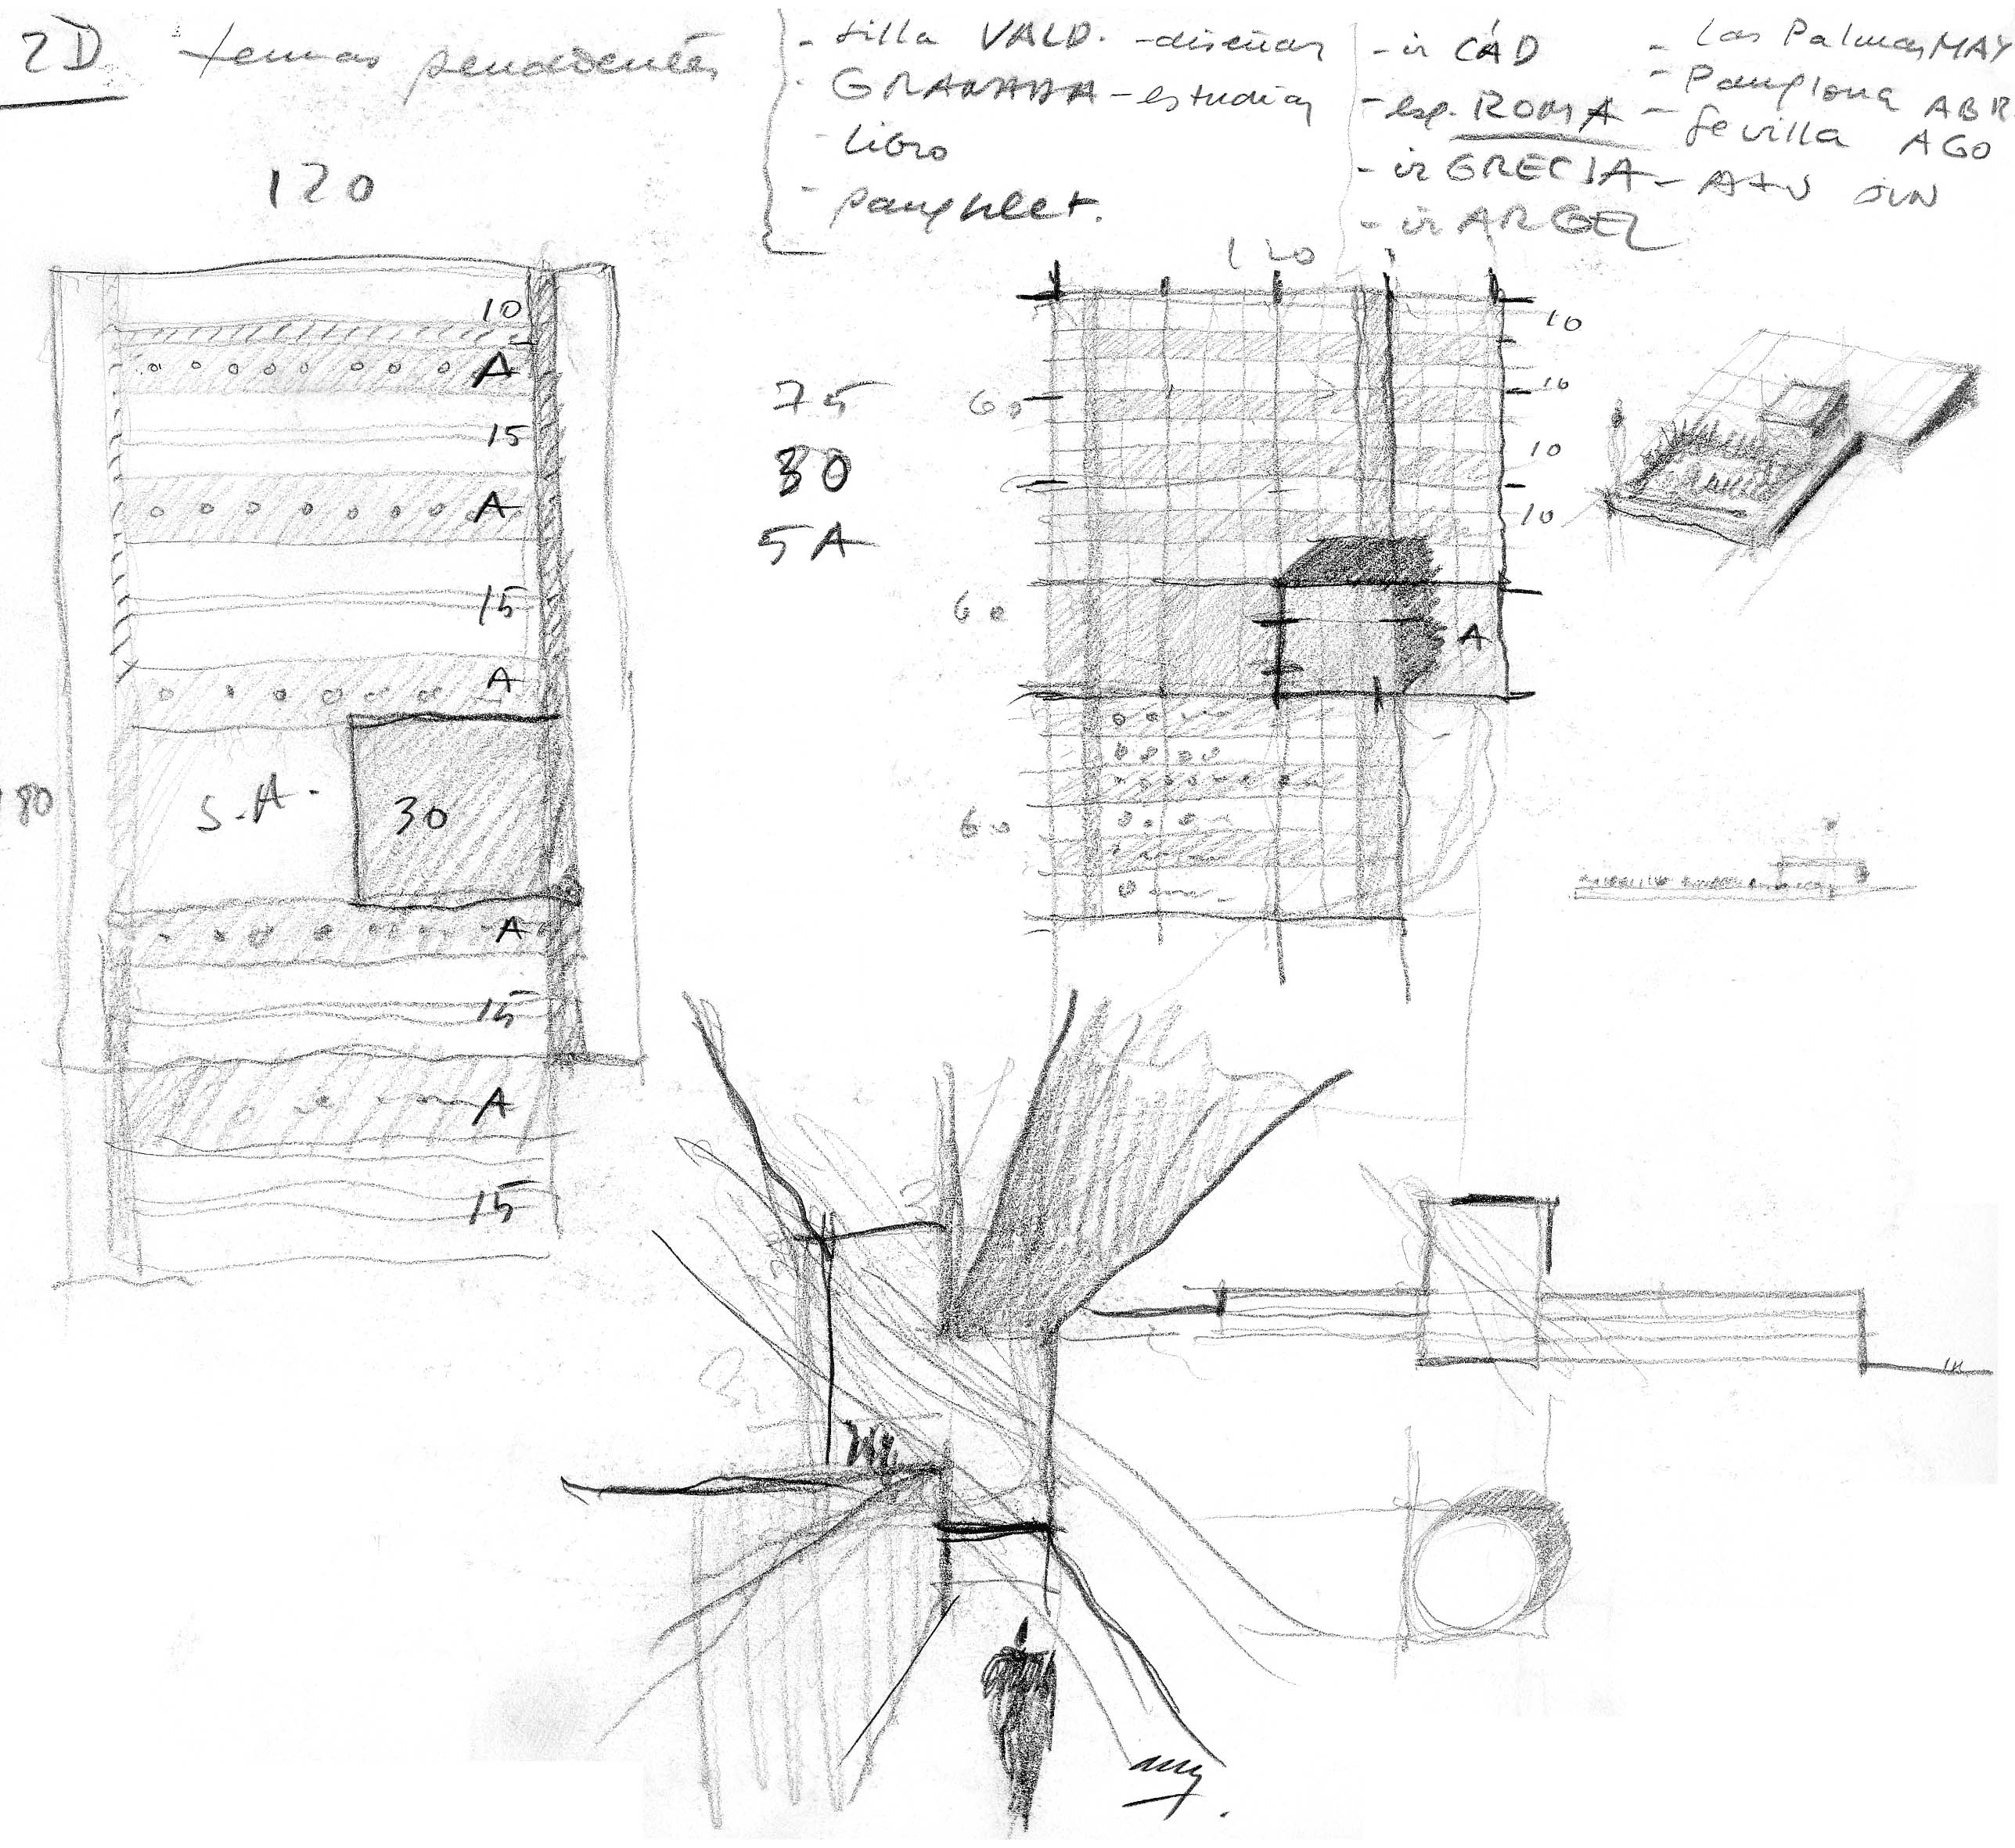 2D temas pendientes
- silla VALD. - diseñar
- GRANADA - estudiar
- libro
- pamphlet.
- ir CÁD
- esp. ROMA
- ir GRECIA - ATN JUN
- ir ARGEL
- Las Palmas MAY
- Pamplona ABR
- Sevilla AGO
120
10
A
15
A
15
A
S.A.
30
A
15
A
15
75
30
5A
120
10
60
10
10
10
60
A
60